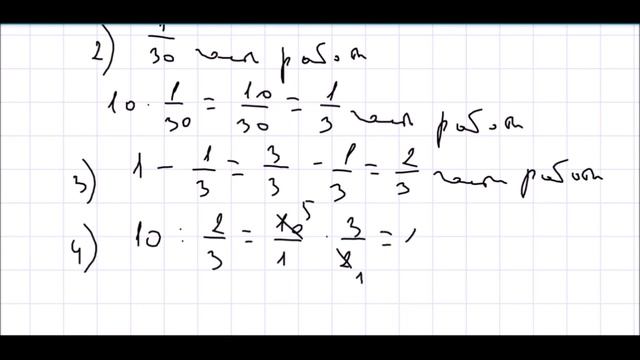 2) 1/30 части работ
10 · 1/30 = 10/30 = 1/3 части работ
3) 1 - 1/3 = 3/3 - 1/3 = 2/3 части работ
4) 10 : 2/3 = 10 5/1 · 3/2 1 =